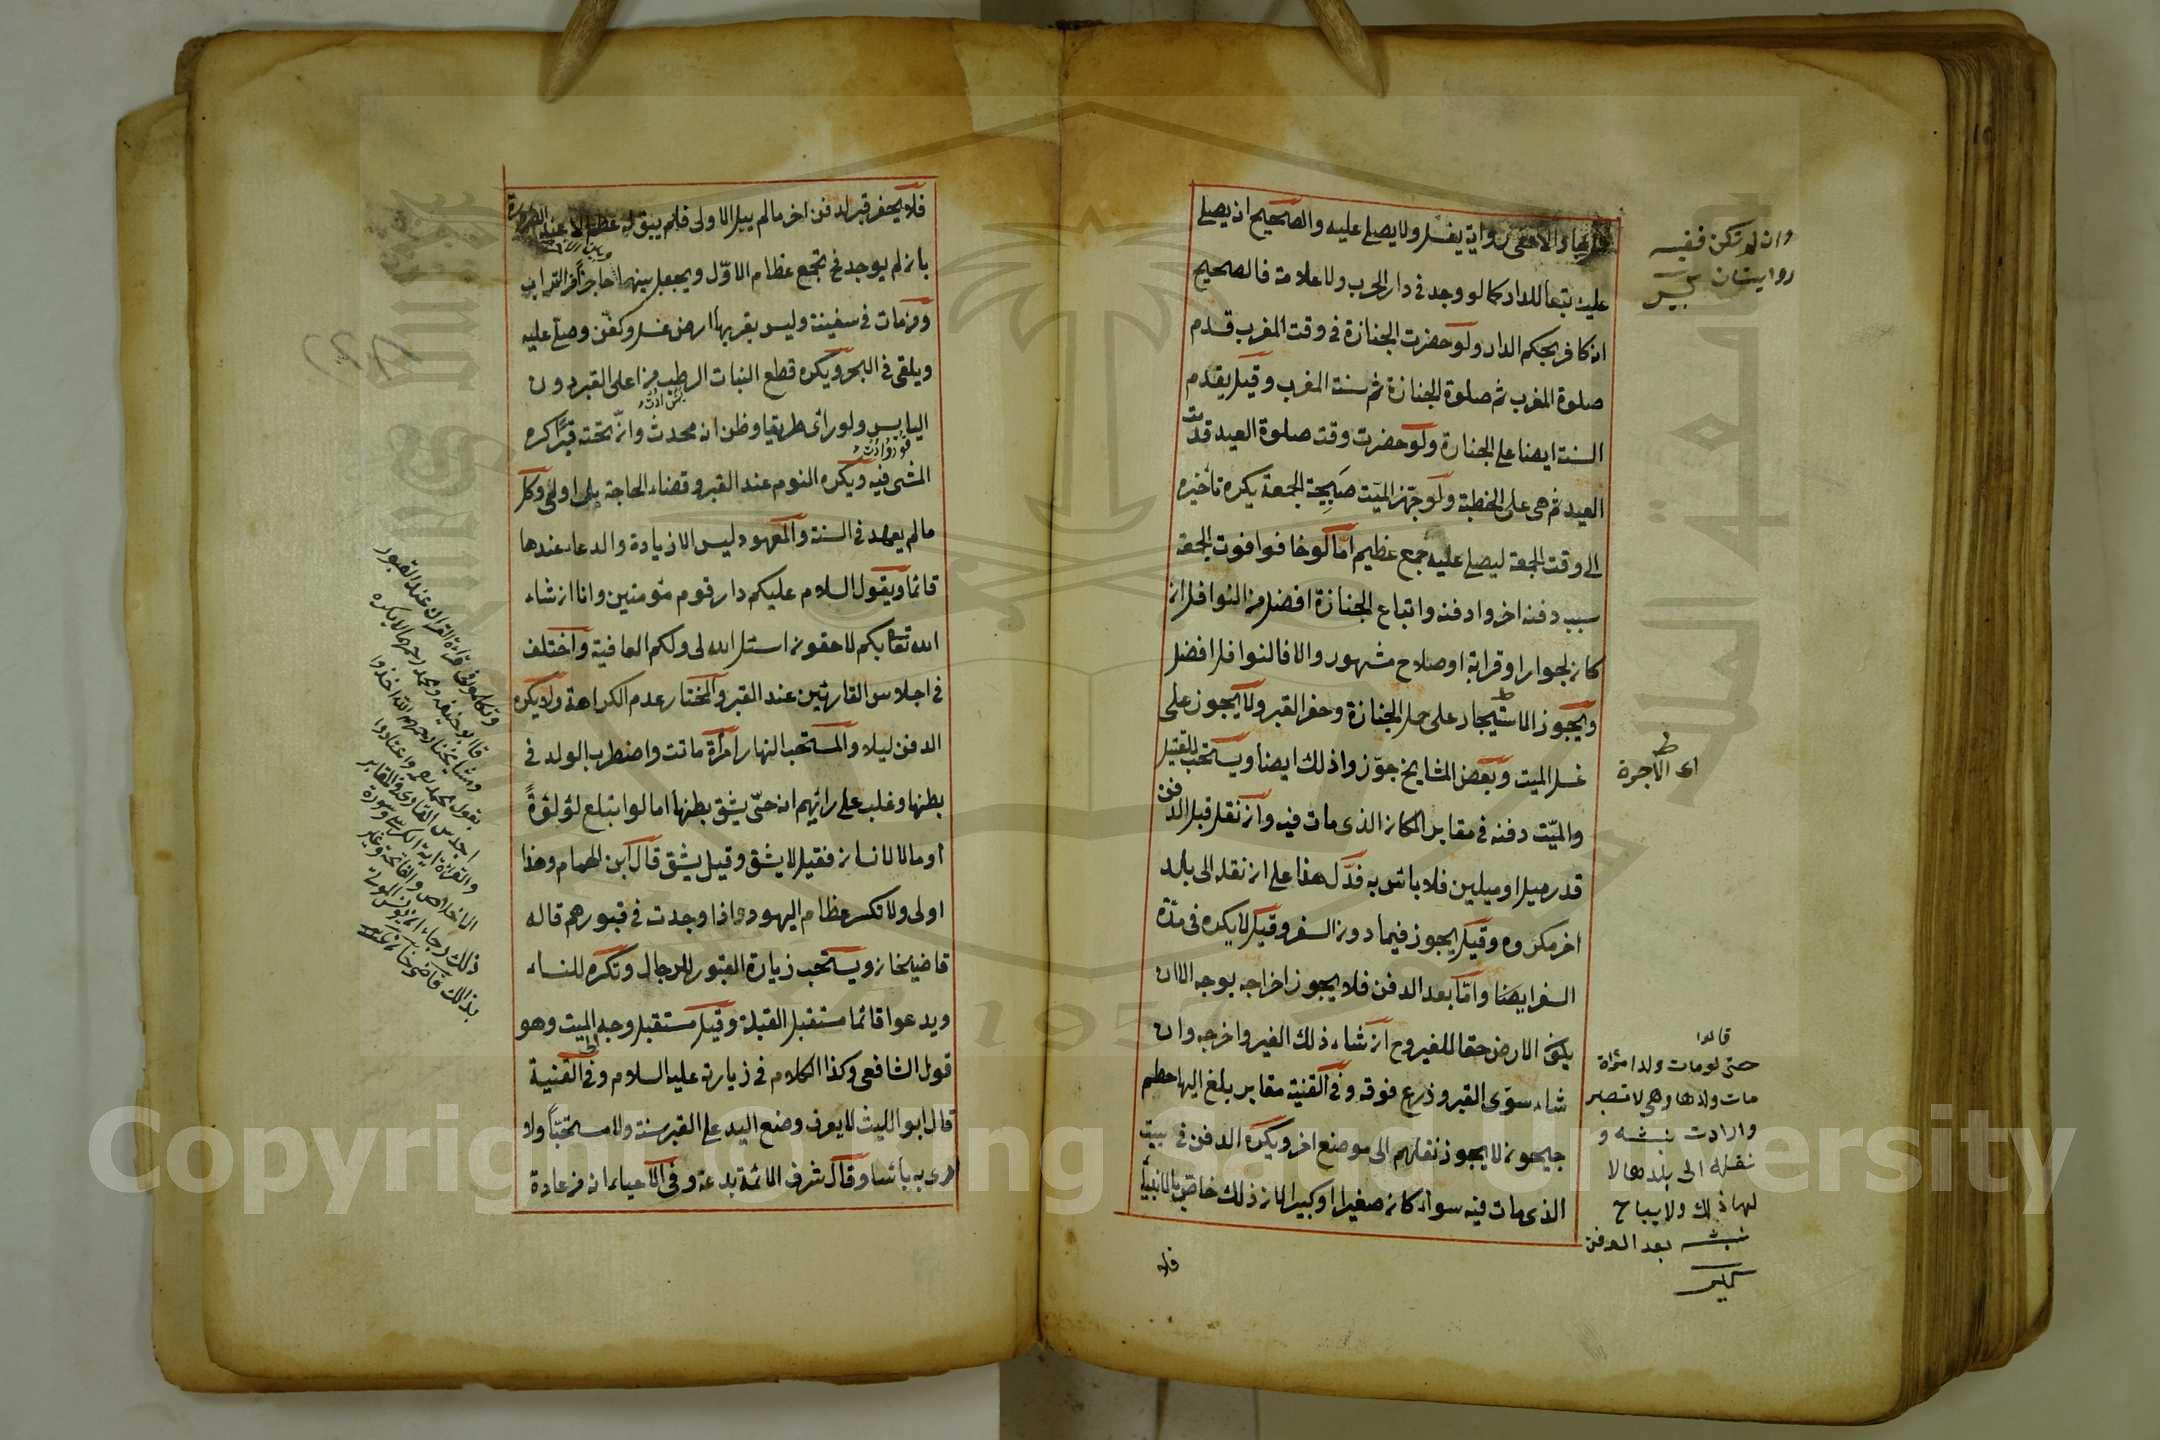 رواية يغسل ولا يصلى عليه والصحيح ان يصلى
عليه تبعا للدار كما لو وجد فى دار الحرب ولا علامة فالصحيح
انه كافر بحكم الدار ولو حضرت الجنازة فى وقت المغرب قدم
صلوة المغرب ثم صلوة الجنازة ثم سنة المغرب وقيل يقدم
السنة ايضا على الجنازة ولو حضرت وقت صلوة العيد قدمت
العيد ثم هى على الخطبة ولو جهز الميت صبيحة الجمعة يكره تأخيره
الى وقت الجمعة ليصلى عليه جمع عظيم اما لو خافوا فوت الجمعة
بسبب دفنه اخروا دفنه واتباع الجنازة افضل من النوافل ان
كان لجوار او قرابة او صلاح مشهور والا فالنوافل افضل
ويجوز الاستيجار على حمل الجنازة وحفر القبر ولا يجوز على
غسل الميت وبعض المشايخ جوزوا ذلك ايضا ويستحب للقتيل
والميت دفنه فى مقابر المكان الذى مات فيه وان نقل قبل الدفن
قدر ميل او ميلين فلا باس به فدل هذا على ان نقله الى بلد
اخر مكروه وقيل يجوز فيما دون السفر وقيل لا يكره فى مدة
السفر ايضا واما بعد الدفن فلا يجوز اخراجه بوجه الا ان
يكون الارض حقا للغير وح ان شاء ذلك الغير اخرجه وان
شاء سوى القبر وزرع فوقه وفى القنية مقابر بلغ اليها حطم
جيحون لا يجوز نقلهم الى موضع اخر ويكره الدفن فى بيت
الذى مات فيه سواء كان صغيرا او كبيرا لان ذلك خاص بالانبياء
فلا
وان لم تكن ففيه
روايتان كبير
ط
اى الاجرة
قالوا
حتى لو مات ولد امرأة
مات ولدها وهى لا تصبر
وارادت نبشه و
نقله الى بلدها لا
لها ذلك ولا يباح
نبشه بعد الدفن
كبير
فلا يحفر قبر لدفن اخر ما لم يبل الاول فلم يبق له عظم الا عند الضرورة
بان لم يوجد فح يجمع عظام الاول ويجعل بينهما حاجزا من التراب
ومن مات فى سفينة وليس بقربها ارض غسل وكفن وصلى عليه
ويلقى فى البحر ويكره قطع النبات الرطب من اعلى القبر دون
اليابس ولو رأى طريقا وظن انه محدث وان تحته قبرا كره
المشى فيه ويكره النوم عند القبر وقضاء الحاجة بل اولى وكل
ما لم يعهد فى السنة والمعهود ليس الا زيارة والدعاء عندها
قائما ويقول السلام عليكم دار قوم مؤمنين وانا ان شاء
الله تعا بكم لاحقون اسئل الله لى ولكم العافية واختلف
فى اجلاس القارئين عند القبر والمختار عدم الكراهة ولا يكره
الدفن ليلا والمستحب النهار امرأة ماتت واضطرب الولد فى
بطنها وغلب على رائهم انه حى يشق بطنها اما لو ابتلع لؤلؤة
او مالا لانسان فقيل لا يشق وقيل يشق قال ابن الهمام وهذا
اولى ولا تكسر عظام اليهود اذا وجدت فى قبورهم قاله
قاضيخان ويستحب زيارة القبور للرجال وتكره للنساء
ويدعوا قائما مستقبل القبلة وقيل مستقبل وجه الميت وهو
قول الشافعى وكذا الكلام فى زيارته عليه السلام وفى القنية
قال ابو الليث لا يعرف وضع اليد على القبر سنة ولا مستحبا ولا
نرى به باسا وقال شرف الائمة بدعة وفى الاحياء انه من عادة
وتكلموا فى قراءة القرآن عند القبور
بقول محمد
اجلاس القارى فى المقابر
والقراءة اية الكرسى وسورة
الاخلاص والفاتحة وغير
ذلك رجاء ان يونس الموتى
بذلك قاضيخان
Copyright © King Saud University
1957